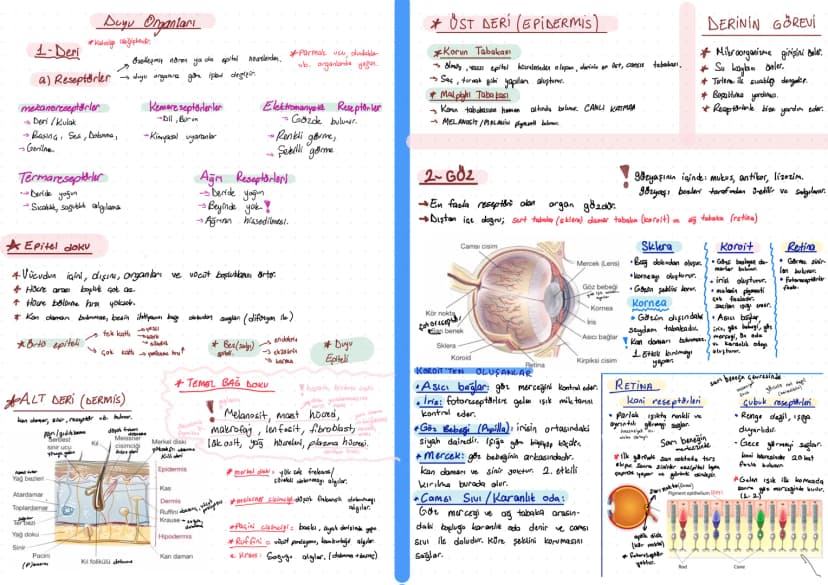 Duyu Organları
1-Deri
a) Reseptörler
→ duyu organına göre işlevi değişir.
* Parmak ucu, dudaklar
vb. organlarda yoğun.
mekanoreseptörler
→ Deri / Kulak
→ Basınç, Ses, Dokunma,
→ Gerilme
Kemoreseptörler
→ Dil, Burun
→ Kimyasal uyaranlar
Elektromanyetik Reseptörler
→ Gözde bulunur.
→ Renkli görme,
→ Şekilli görme
Termoreseptörler
→ Deride yoğun
→ Sıcaklık, soğukluk algılama
Ağrı Reseptörleri
→ Deride yoğun
→ Beyinde yok!
→ Ağrının hissedilmesi.
★ Epitel doku
* Vücudun içini, dışını, organları ve vücut boşluklarını örter.
* Hücre arası boşluk çok az.
* Hücre bölünme hızı yüksek.
* Kan damarı bulunmaz, besin ihtiyacını bağ dokudan sağlar (difüzyon ile)
* Örtü epiteli
→ tek katlı
→ yassı
→ kübik
→ silindirik
→ çok katlı
* Bez (salgı) epiteli
→ endokrin
→ ekzokrin
→ karma
* Duyu
Epiteli
★ ALT DERİ (DERMİS)
kan damarı, sinir, reseptör vb. bulunur.
Serbest
sinir ucu
Kıl
Meissner
cisimciği
Merkel diski
Epidermis
Kas
Dermis
Ruffini
Krause
Hipodermis
Kan damarı
Yağ bezleri
Atardamar
Toplardamar
Ter bezi
Yağ doku
Sinir
Pacini
Kıl folikülü
* TEMEL BAĞ DOKU
Melanosit, mast hücresi,
makrofaj, lenfosit, fibroblast,
lökosit, yağ hücreleri, plazma hücresi.
* merkel diski: yüksek frekanslı
sürekli dokunmayı algılar.
* meissner cisimciği: düşük frekanslı dokunmayı
algılar.
* Pacini cisimciği: basıncı algılar
* Ruffini:
* Kraus: Soğuğu algılar. (dokunma + basınç)
* ÜST DERİ (EPİDERMİS)
* Korun Tabakası
→ Ölmüş, yassı epitel hücrelerinden oluşan, derinin en üst, cansız tabakası.
→ Saç, tırnak gibi yapıları oluşturur.
* Malpighi Tabakası
→ Korun tabakasının hemen altında bulunur. CANLI KATMAN
→ MELANOSİT / MELANİN pigmenti bulunur.
DERİNİN GÖREVİ
* Mikroorganizma girişini önler.
* Su kaybını önler.
* Terleme ile sıcaklığı dengeler.
* Boşaltıma yardımcı.
* Reseptörlerle bize yardım eder.
2- GÖZ
! Gözyaşının içinde; mukus, antikor, lizozim.
Gözyaşı bezleri tarafından üretilir ve salgılanır.
→ En fazla reseptörü olan organ gözdür.
→ Dıştan içe doğru; sert tabaka (sklera) damar tabaka (koroit) ve ağ tabaka (retina)
Camsı cisim
Mercek (Lens)
Göz bebeği
Kornea
İris
Asıcı bağlar
Kirpiksi cisim
Kör nokta
Sarı benek
Sklera
Koroid
Retina
Sklera
• Bağ dokudan oluşur.
• korneayı oluşturur.
• Gözün şeklini korur.
Kornea
• Gözün dışındaki
saydam tabakadır.
! Kan damarı bulunmaz.
1. Etkili kırılmayı
yapar.
Koroit
• Gözü besleyen
damarlar bulunur.
• iris oluşturur.
• melanin pigmenti
çok fazladır.
• Asıcı bağlar,
iris, göz bebeği, göz
merceği,
ve karanlık odayı
oluşturur.
Retina
• Görme sinirleri
bulunur.
• Fotoreseptörler
fazla.
KOROİT'TEN OLUŞANLAR
* Asıcı bağlar: göz merceğini kontrol eder.
* İris: fotoreseptörlere gelen ışık miktarını
kontrol eder.
* Göz Bebeği (Pupilla): irisin ortasındaki
siyah dairedir. Işığa göre büyüyüp küçülür.
* Mercek: göz bebeğinin arkasındadır.
Kan damarı ve sinir yoktur. 2. etkili
kırılma burada olur.
* Camsı Sıvı / Karanlık oda:
Göz merceği ve ağ tabaka arasındaki
boşluğa karanlık oda denir ve camsı
sıvı ile doludur. Küre şeklini korumasını
sağlar.
RETİNA
koni reseptörleri
• Parlak ışıkta renkli ve
ayrıntılı görmeyi sağlar.
sarı beneğin
çubuk reseptörleri
• Renge değil, ışığa
duyarlıdır.
• Gece görmeyi sağlar.
koni hücresinden 20 kat
fazla bulunur.
Pigment epithelium
Rod
Cone